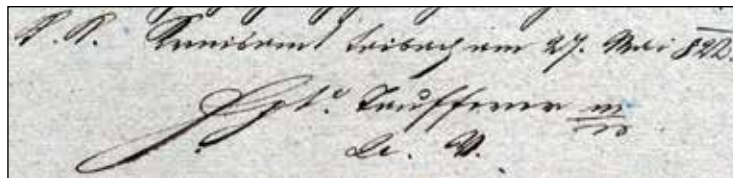 K. K. Kreisamt Laibach am 27. Mai 822.
Taufferer m/p